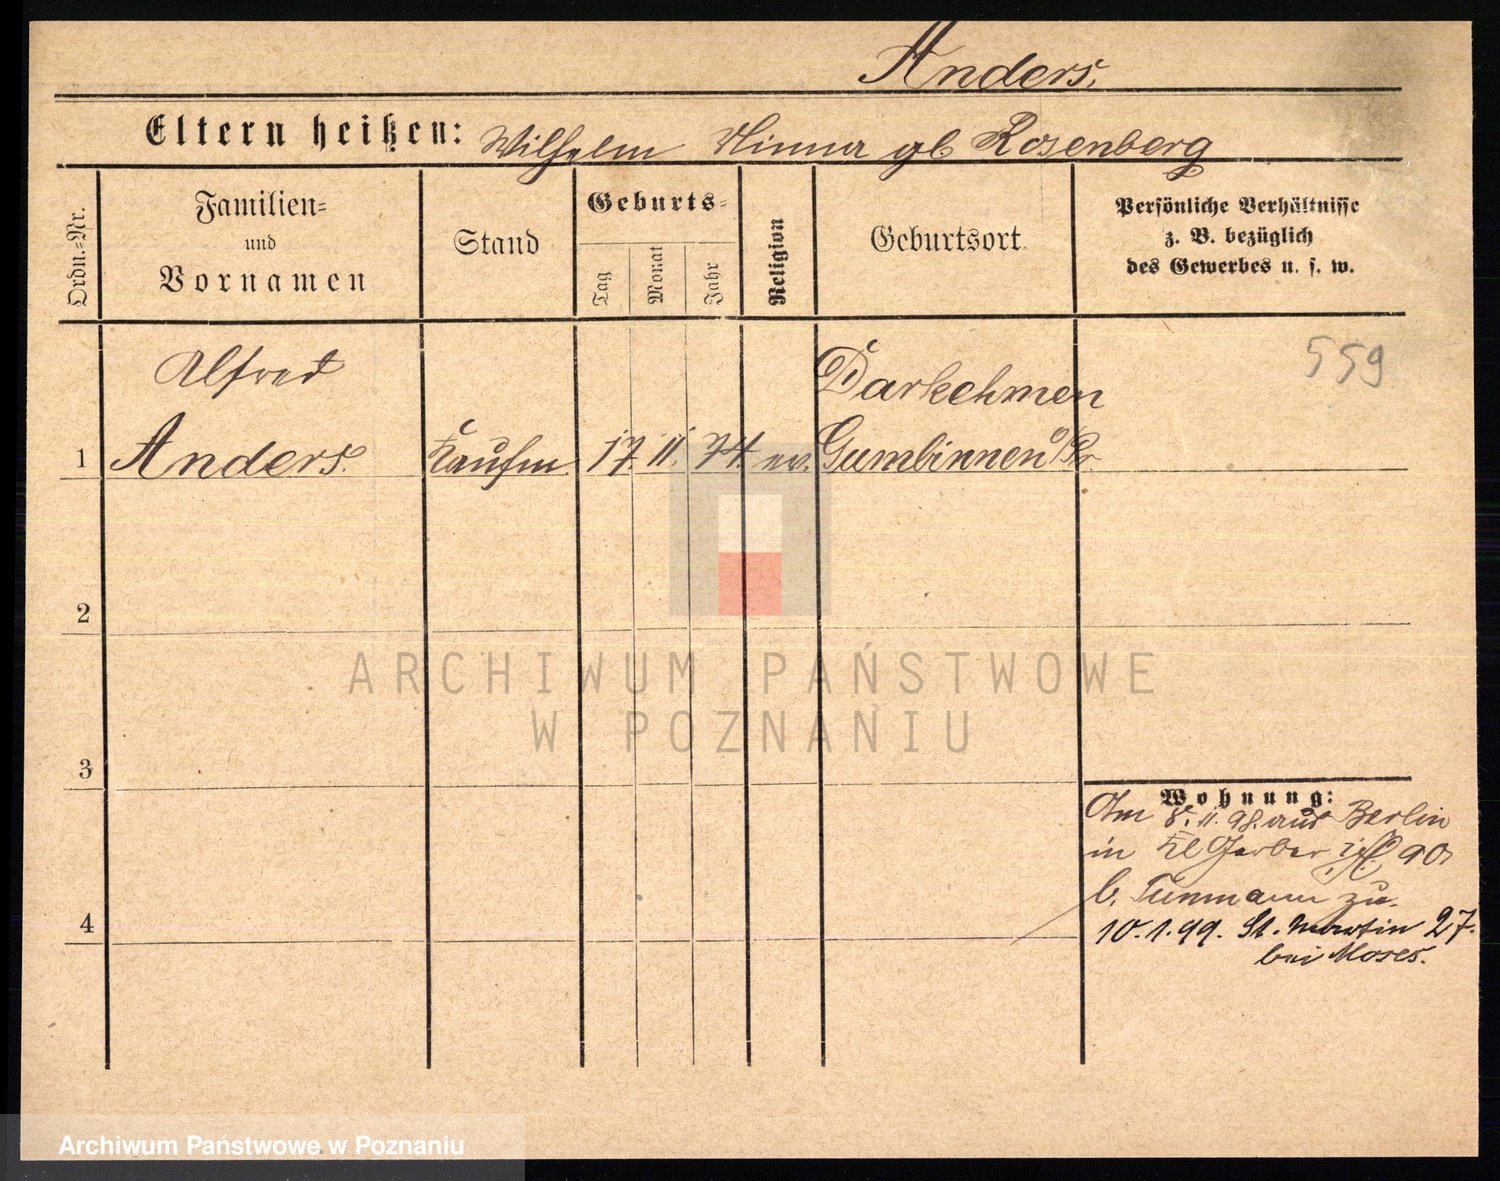 Anders.
Eltern heißen: Wilhelm Minna gb Rosenberg
Ordn.-Nr.
Familien-
und
Vornamen
Stand
Geburts-
Tag
Monat
Jahr
Religion
Geburtsort
Persönliche Verhältnisse
z. B. bezüglich
des Gewerbes u. s. w.
559
Alfred Darkehmen
1 Anders. Kaufm. 17. 11. 74. ev. Gumbinnen O/Pr
2
ARCHIWUM PAŃSTWOWE
W POZNANIU
3
Wohnung:
Am 8. 11. 98. aus Berlin
in Kl Gerber 90
b. zu.
4
10. 1. 99. St. Martin 27.
bei Moses.
Archiwum Państwowe w Poznaniu